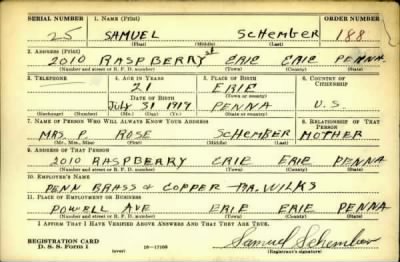 SERIAL NUMBER 1. NAME (Print) ORDER NUMBER
25 SAMUEL SCHEMBER 188
(First) (Middle) (Last)
2. ADDRESS (Print)
2010 RASPBERRY st ERIE ERIE PENNA
(Number and street or R. F. D. number) (Town) (County) (State)
3. TELEPHONE 4. AGE IN YEARS 5. PLACE OF BIRTH 6. COUNTRY OF CITIZENSHIP
21 ERIE
DATE OF BIRTH (Town or county)
JULY 31 1919 PENNA U.S.
(Exchange) (Number) (Mo.) (Day) (Yr.) (State or country)
7. NAME OF PERSON WHO WILL ALWAYS KNOW YOUR ADDRESS 8. RELATIONSHIP OF THAT PERSON
MRS. P. ROSE SCHEMBER MOTHER
(Mr., Mrs., Miss) (First) (Middle) (Last)
9. ADDRESS OF THAT PERSON
2010 RASPBERRY ERIE ERIE PENNA
(Number and street or R. F. D. number) (Town) (County) (State)
10. EMPLOYER'S NAME
PENN BRASS & COPPER WILKS
11. PLACE OF EMPLOYMENT OR BUSINESS
POWELL AVE ERIE ERIE PENNA
(Number and street or R. F. D. number) (Town) (County) (State)
I AFFIRM THAT I HAVE VERIFIED ABOVE ANSWERS AND THAT THEY ARE TRUE.
REGISTRATION CARD
D. S. S. Form 1 (over) 16—17105 Samuel Schember
(Registrant's signature)